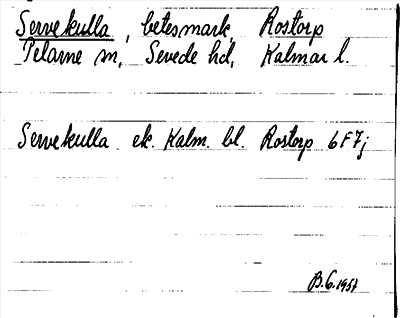 Servekulla, betesmark, Rostorp
Pelarne sn, Sevede hd, Kalmar l.
Servekulla ek. Kalm. bl. Rostorp 6F7j
B.G. 1957